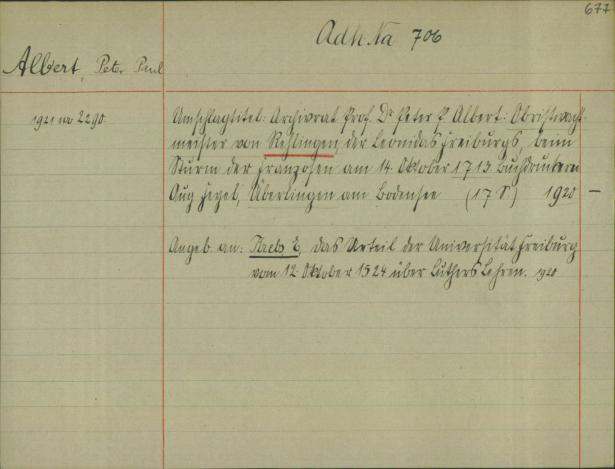 677
Adh. Na 706
Albert, Peter Paul
1921 no 2290.
Umschlagtitel: Archivrat Prof. Dr Peter P. Albert: Obristwacht-
meister von Rehlingen, der Leonidas Freiburgs, beim
Sturm der Franzosen am 14. Oktober 1713. Buchdruckerei
Aug Feyel, Überlingen am Bodensee (17 S.) 1920 —
Angeb. an: Krebs E, Das Urteil der Universität Freiburg
vom 12. Oktober 1524 über Luthers Lehren. 1920